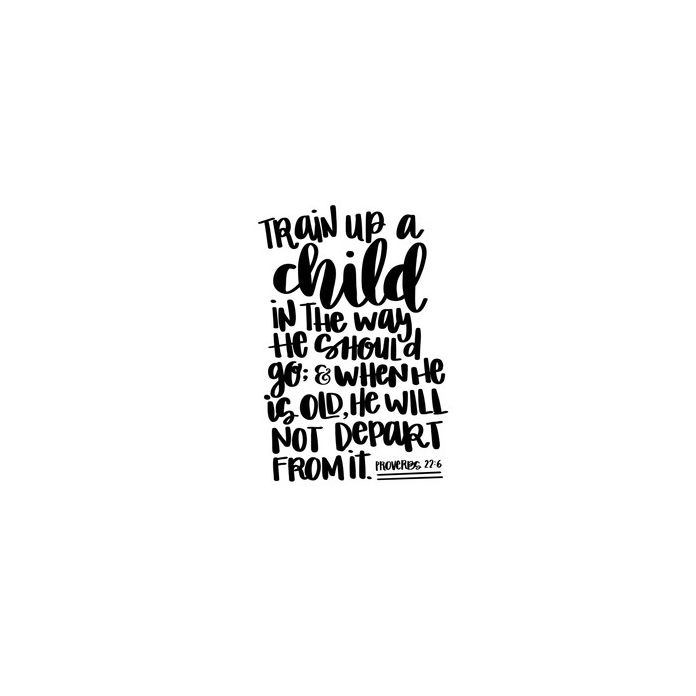 TRAIN UP A
child
IN THE WAY
HE SHOULD
GO; & WHEN HE
IS OLD, HE WILL
NOT DEPART
FROM IT. PROVERBS 22:6